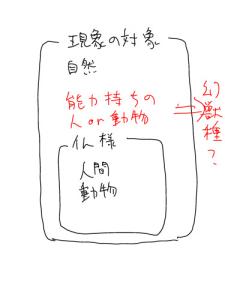 現象の対象
自然
能力持ちの
人or動物
⇒幻獣種?
仏様
人間
動物